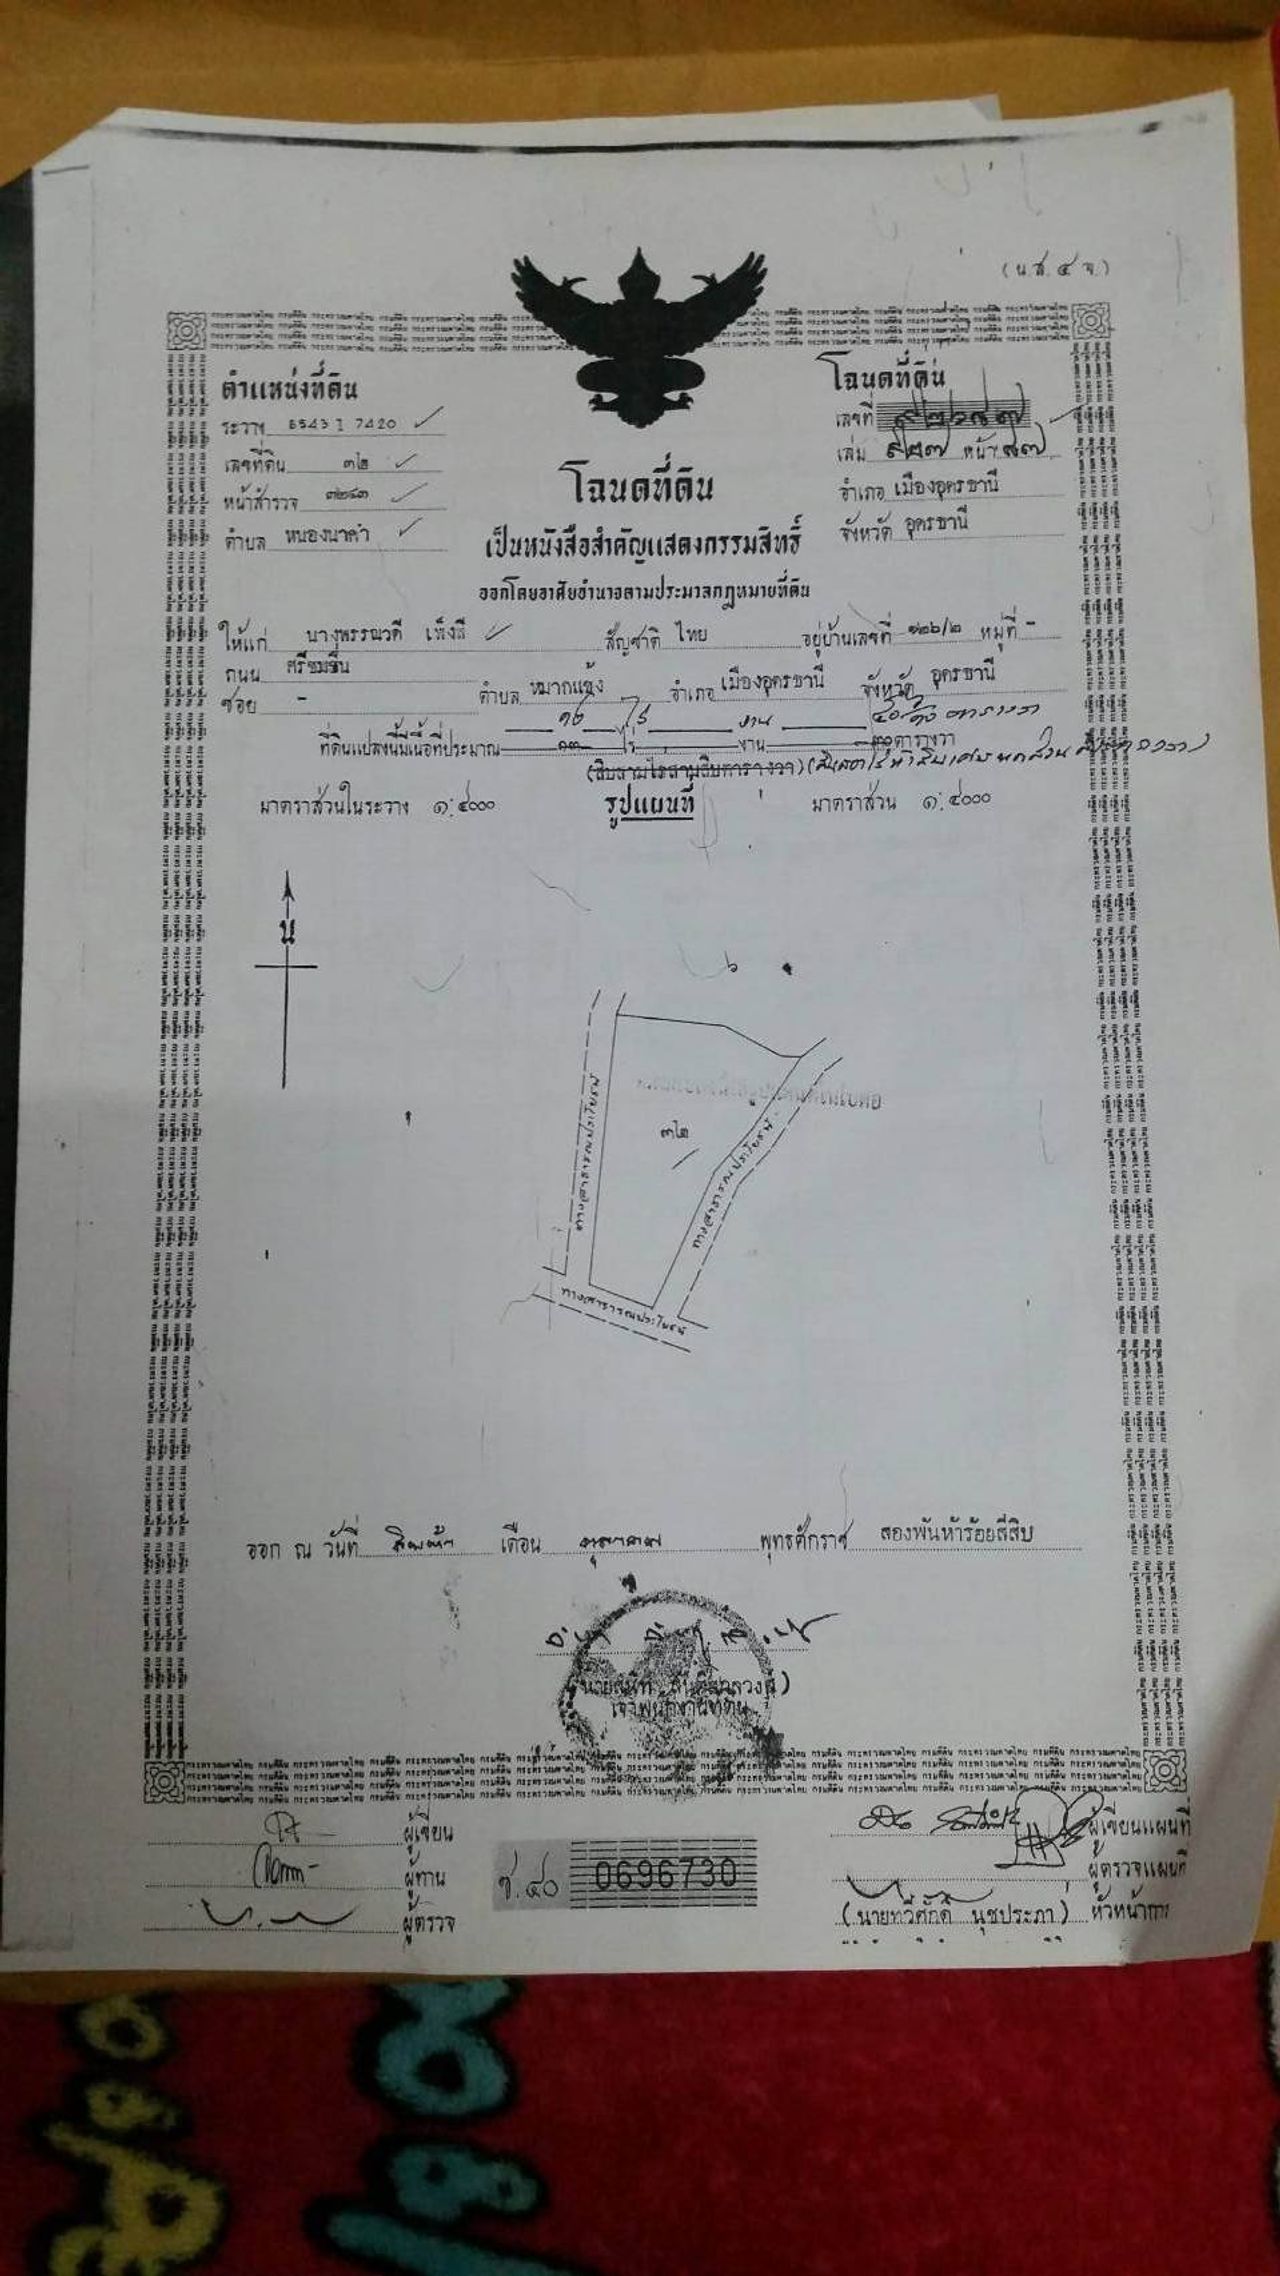 (น.ส. ๔ จ.)
ตำแหน่งที่ดิน
ระวาง 5543 I 7420
เลขที่ดิน ๓๒
หน้าสำรวจ ๓๒๔๓
ตำบล หนองนาคำ
โฉนดที่ดิน
เลขที่
เล่ม ๙๒๗ หน้า ๘๗
อำเภอ เมืองอุดรธานี
จังหวัด อุดรธานี
โฉนดที่ดิน
เป็นหนังสือสำคัญแสดงกรรมสิทธิ์
ออกโดยอาศัยอำนาจตามประมวลกฎหมายที่ดิน
ให้แก่ นางพรรณวดี เพ็งสี สัญชาติ ไทย อยู่บ้านเลขที่ ๑๒๖/๒ หมู่ที่ -
ถนน ศรีชมชื่น
ซอย - ตำบล หมากแข้ง อำเภอ เมืองอุดรธานี จังหวัด อุดรธานี
ไร่ งาน ตารางวา
ที่ดินแปลงนี้มีเนื้อที่ประมาณ ๑๓ ไร่ งาน ๓๐ ตารางวา
(สิบสามไร่สามสิบตารางวา)
มาตราส่วนในระวาง ๑:๔๐๐๐ รูปแผนที่ มาตราส่วน ๑:๔๐๐๐
น
๖
๓๒
ทางสาธารณประโยชน์
ทางสาธารณประโยชน์
ทางสาธารณประโยชน์
ออก ณ วันที่ สิบห้า เดือน ตุลาคม พุทธศักราช สองพันห้าร้อยสี่สิบ
เจ้าพนักงานที่ดิน
ผู้เขียน
ผู้ทาน
ผู้ตรวจ
ช.๔๐ 0696730
ผู้เขียนแผนที่
ผู้ตรวจแผนที่
(นายทวีศักดิ์ นุชประภา) หัวหน้าการ